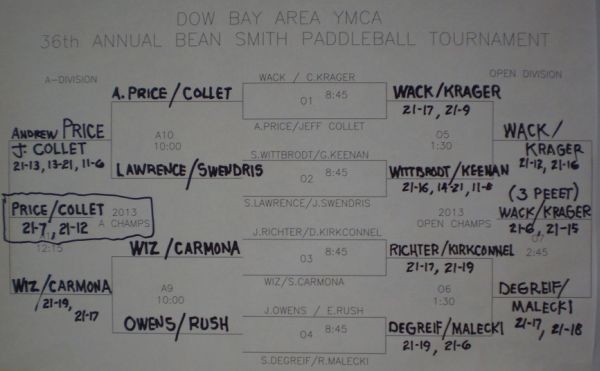 DOW BAY AREA YMCA
36th ANNUAL BEAN SMITH PADDLEBALL TOURNAMENT
A-DIVISION
OPEN DIVISION
WACK / C.KRAGER
A. PRICE/COLLET
01 8:45
WACK/KRAGER
21-17, 21-9
A.PRICE/JEFF COLLET
ANDREW PRICE
J COLLET
21-13, 13-21, 11-6
A10
10:00
O5
1:30
WACK/
KRAGER
21-12, 21-16
S.WITTBRODT/G.KEENAN
LAWRENCE/SWENDRIS
02 8:45
WITTBRODT/KEENAN
21-16, 14-21, 11-8
S.LAWRENCE/J.SWENDRIS
(3 PEEET)
PRICE/COLLET
21-7, 21-12
2013
A CHAMPS
12:15
2013
OPEN CHAMPS
WACK/KRAGER
21-6, 21-15
O7
2:45
J.RICHTER/D.KIRKCONNEL
WIZ/CARMONA
03 8:45
RICHTER/KIRKCONNEL
21-17, 21-19
WIZ/S.CARMONA
WIZ/CARMONA
21-19,
21-17
A9
10:00
O6
1:30
DEGREIF/
MALECKI
21-17, 21-18
J.OWENS / E.RUSH
OWENS/RUSH
04 8:45
DEGREIF/MALECKI
21-19, 21-6
S.DEGREIF/R.MALECKI